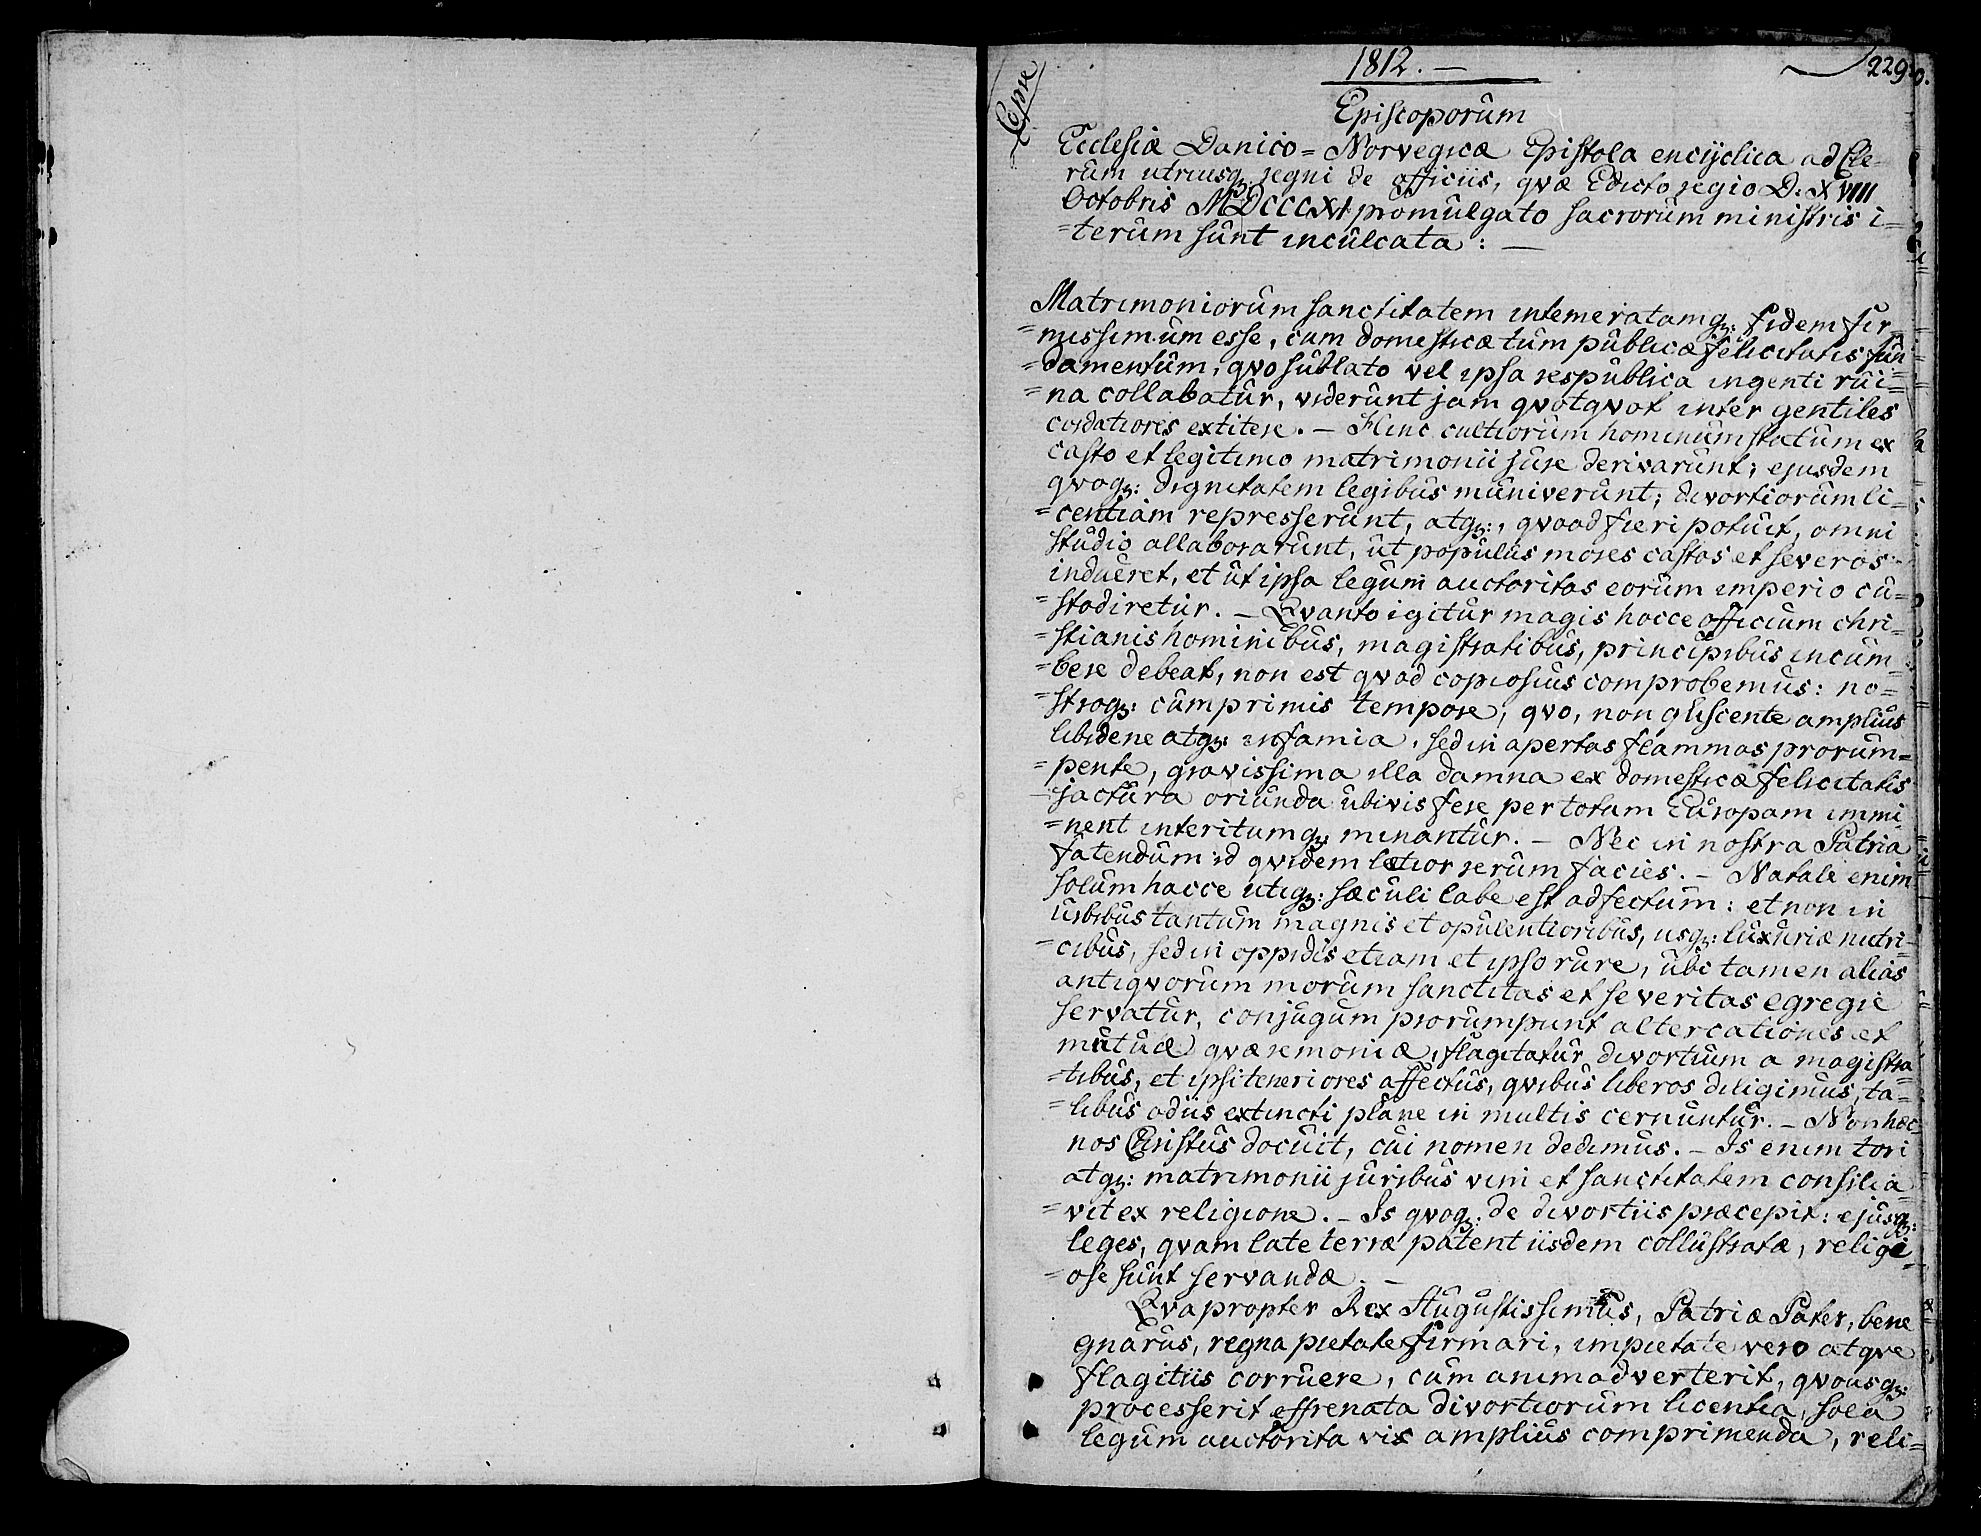 1812. —
229.
Episcoporum
Ecclesiæ Danico = Norvegicæ Epistola encyclica ad Cle-
rum utriusqꝫ: regni de officiis, qvæ Edicto regio D: XVIII
Octobris MDCCCXI promulgato sacrorum ministris i=
=terum sunt inculcata: —
Matrimoniorum sanctitatem intemeratamqꝫ: fidem fir=
=missimum esse, cum domesticæ tum publicæ felicitatis fun
=damentum, qvo sublato vel ipsa respublica ingenti rui=
=na collabatur, viderunt jam qvotqvot inter gentiles
cordatiores extitere. — Hinc cultiorum hominum statum ex
casto et legitimo matrimonii jure derivarunt; ejusdem
qvoqꝫ: dignitatem legibus muniverunt; divortiorum li=
=centiam represserunt, atqꝫ:, qvoad fieri potuit, omni
studio allaborarunt, ut populus mores castos et severos
indueret, et ut ipsa legum auctoritas eorum imperio cu=
=stodiretur. — Qvanto igitur magis hocce officium chri=
=stianis hominibus, magistratibus, principibus incum
=bere debeat, non est qvod copiosius comprobemus: no=
=stroqꝫ: cumprimis tempore, qvo, non gliscente amplius
libidene atqꝫ: infamia, sed in apertas flammas prorum=
=pente, gravissima illa damna ex domesticæ felicitatis
jactura oriunda ubivis fere per totam Europam immi
=nent interitumqꝫ: minantur. — Nec in nostra Patria
fatendum id qvidem lætior rerum facies. — Natale enim
solum hacce utiqꝫ: sæculi labe est adfectum: et non in
urbibus tantum magnis et opulentioribus, usqꝫ: luxuriæ nutri=
=cibus, sed in oppidis etiam et ipso rure, ubi tamen alias
antiqvorum morum sanctitas et severitas egregie
servatur, conjugum prorumpunt altercationes et
mutuæ qværemoniæ, flagitatur divortium a magistra=
=tibus, et ipsi teneriores affectus, qvibus liberos diligimus, ta=
=libus odiis extincti plane in multis cernuntur. — Non hæc
nos Christus docuit, cui nomen dedimus. — Is enim tori
atqꝫ: matrimonii juribus vim et sanctitatem consilia=
=vit ex religione. — Is qvoqꝫ: de divortiis præcepit: ejusqꝫ:
leges, qvam late terræ patent iisdem collustratæ, religi=
=ose sunt servandæ. —
Qvapropter Rex Augustissimus, Patriæ Pater, bene
gnarus, regna pietate firmari, impietate vero atqve
flagitiis corruere, cum animadverterit, qvousqꝫ:
processerit effrenata divortiorum licentia, sola
legum auctorita vix amplius comprimenda, reli=